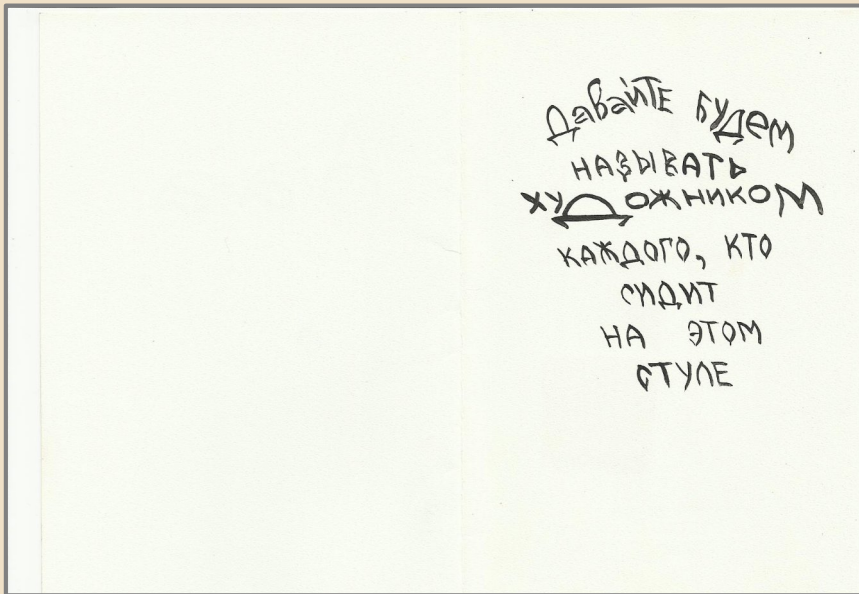 Давайте будем
называть
художником
каждого, кто
сидит
на этом
стуле